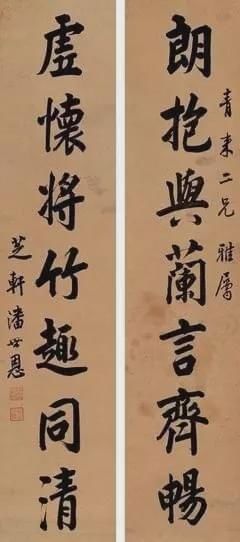 青来二兄雅属
朗抱與蘭言齊暢
虛懷將竹趣同清
芝軒潘世恩